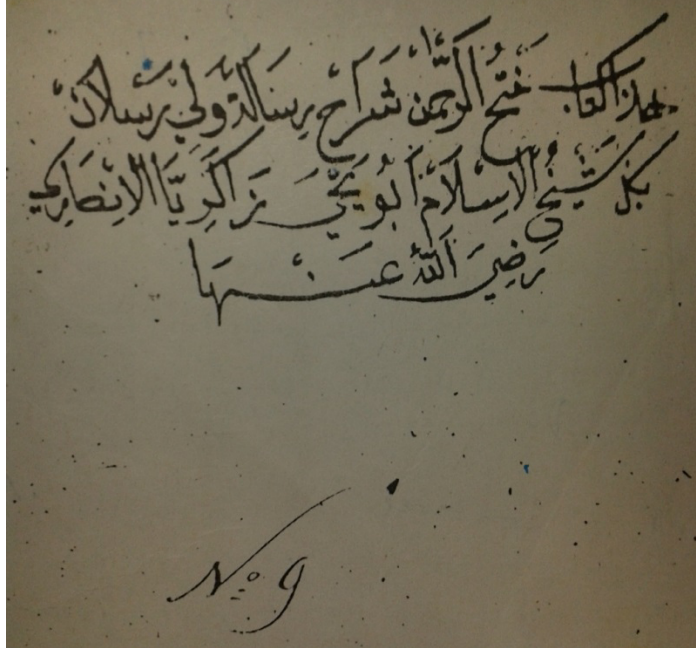 هذا الكتاب فتح الرَّحْمٰن شَرَاحْ رِسَالَةْ وَلِيْ رَسْلَانْ
بكل شَيْخُ الْاِسْلَامْ اَبُو يَحْيَ زَاكَرِيَّا الْاَنْصَارِيْ
رَضِيَ اللّٰهُ عَنْهَا
No: 9